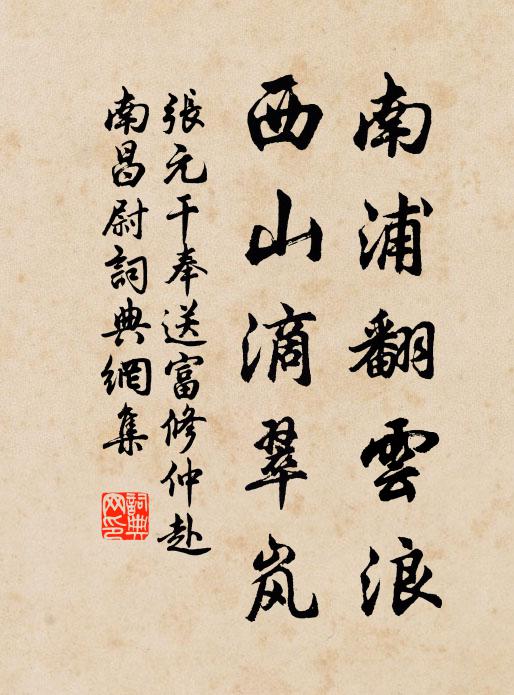 南浦翻雲浪
西山滴翠岚
張元干奉送富修仲赴
南昌尉詞典網集
詞典
网印